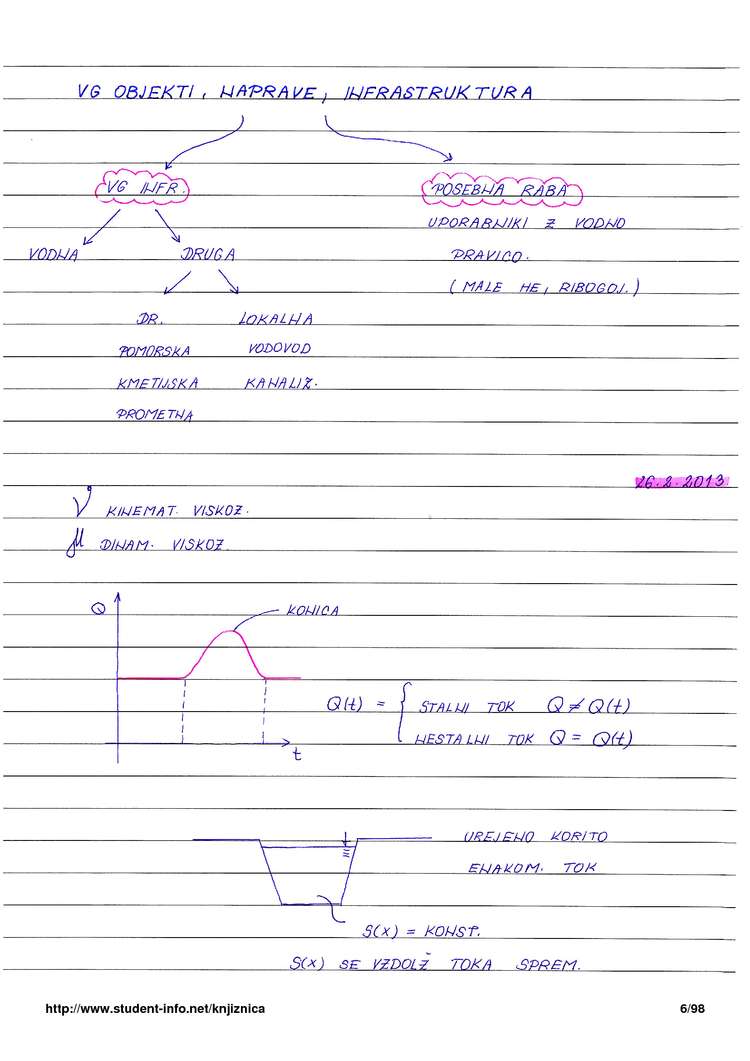 VG OBJEKTI, NAPRAVE, INFRASTRUKTURA
VG INFR.
POSEBNA RABA
UPORABNIKI Z VODNO
VODNA
DRUGA
PRAVICO.
(MALE HE, RIBOGOJ.)
DR.
LOKALNA
POMORSKA
VODOVOD
KMETIJSKA
KANALIZ.
PROMETNA
26.2.2013
ν KINEMAT. VISKOZ.
μ DINAM. VISKOZ.
Q
KONICA
Q(t) = { STALNI TOK Q ≠ Q(t)
NESTALNI TOK Q = Q(t)
t
UREJENO KORITO
ENAKOM. TOK
S(x) = KONST.
S(x) SE VZDOLŽ TOKA SPREM.
http://www.student-info.net/knjiznica
6/98